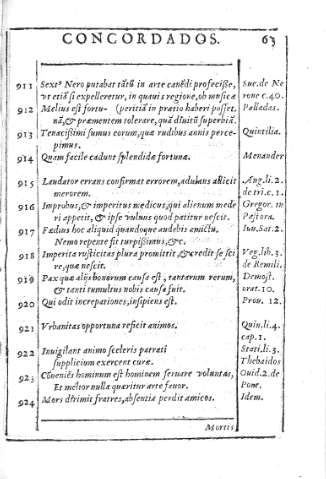 CONCORDADOS. 63
911 Sextº Nero putabat tãtũ in arte canẽdi profecisse, Sue. de Ne
ut etiã si expelleretur, in quavis regione, ob musicæ rone c. 40.
912 Melius est fortu- (peritiã in pratio haberi posset. Palladas.
nã, & præmentem tolerare, quã divitũ superbiã.
913 Tenacissimi sumus eorum, quæ rudibus annis perce- Quintilia.
pimus.
914 Quam facile cadunt splendidæ fortunæ. Menander
915 Laudator errans confirmat errorem, adulans allicit Aug. li. 2.
merorem. de tri. c. 1.
916 Improbus, & imperitus medicus, qui alienum mede Gregor. in
ri appetit, & ipse vulnus quod patitur nescit. Pastora.
917 Fædius hoc aliquid quandoque audebis amictu, Iuu. Sat. 2.
Nemo repente fit turpissimus, &c.
918 Imperita rusticitas plura promittit, & credit se sci Veg. lib. 3.
re, quæ nescit. de Remili.
919 Pax quæ alijs bonorum causa est, tantarum rerum, Demost.
& tanti tumultus nobis causa fuit. orat. 10.
920 Qui odit increpationes, insipiens est. Prou. 12.
921 Vrbanitas opportuna reficit animos. Quin. li. 4.
cap. 1.
922 Invigilant animo sceleris patrati Stati. li. 3.
supplicium exercent curæ. Thebaidos
923 Cõveniẽs hominum est hominem servare voluntas, Ouid. 2. de
Et melior nulla quæritur arte favor. Pone.
924 Mors dirimit fratres, absentia perdit amicos. Idem.
Mortis